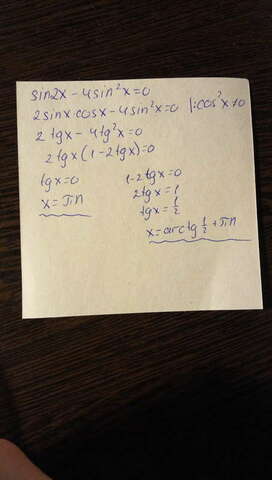 sin2x - 4sin²x=0
2sinx·cosx-4sin²x=0 |:cos²x≠0
2tgx-4tg²x=0
2tgx(1-2tgx)=0
tgx=0 1-2tgx=0
x=πn 2tgx=1
tgx=1/2
x=arctg 1/2+πn